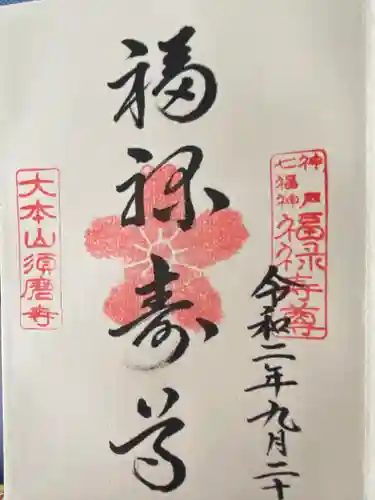 神戸
七福神
福禄寿尊
福禄寿尊
令和二年九月二十
大本山須磨寺